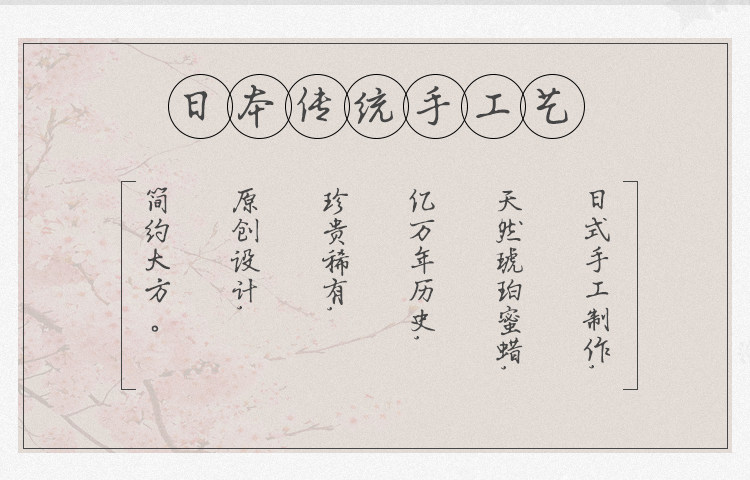 日本传统手工艺
日式手工制作，
天然琥珀蜜蜡，
亿万年历史，
珍贵稀有，
原创设计，
简约大方。